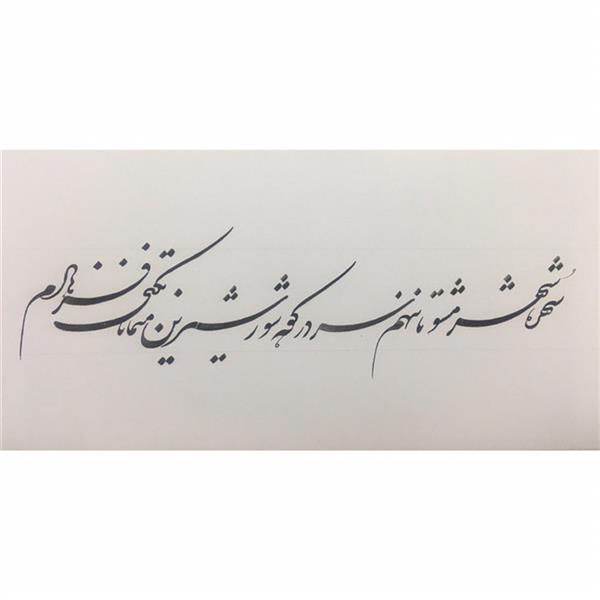 شهرهٔ شهر مشو تا ننهم سر در کوه شور شیرین منما تا نکنی فرهادم